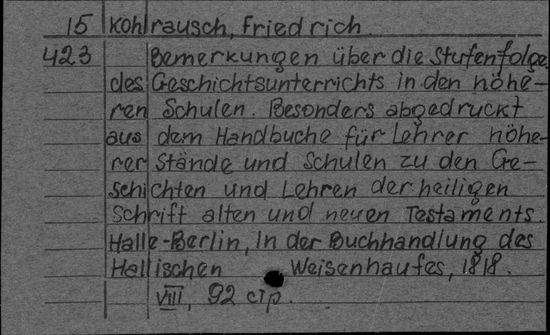 15 Kohlrausch, Friedrich.
423 Bemerkungen über die Stufenfolge
des Geschichtsunterrichts in den höhe-
ren Schulen. Besonders abgedruckt
aus dem Handbuche für Lehrer höhe-
rer Stände und Schulen zu den Ge-
schichten und Lehren der heiligen
Schrift alten und neuen Testaments.
Halle-Berlin, In der Buchhandlung des
Hallischen Weisenhaufes, 1818.
VIII, 92 стр.